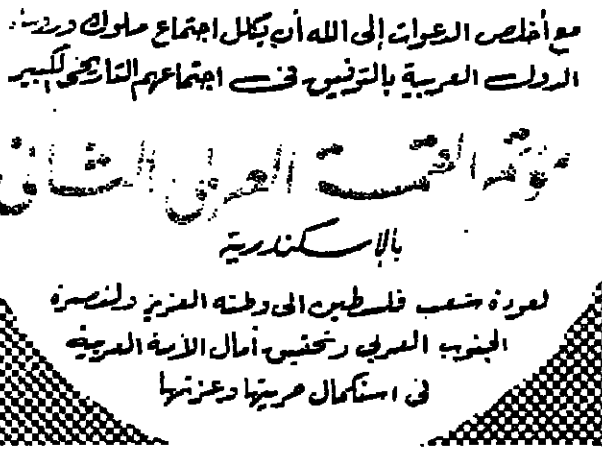 مع أخلص الدعوات إلى الله أن يكلل اجتماع ملوك ورؤساء
الدول العربية بالتوفيق في اجتماعهم التاريخي الكبير
مؤتمر القمة العربي الثاني
بالإسكندرية
لعودة شعب فلسطين الى وطنه العزيز ولنصرة
الجنوب العربي وتحقيق آمال الأمة العربية
في استكمال حريتها وعزتها